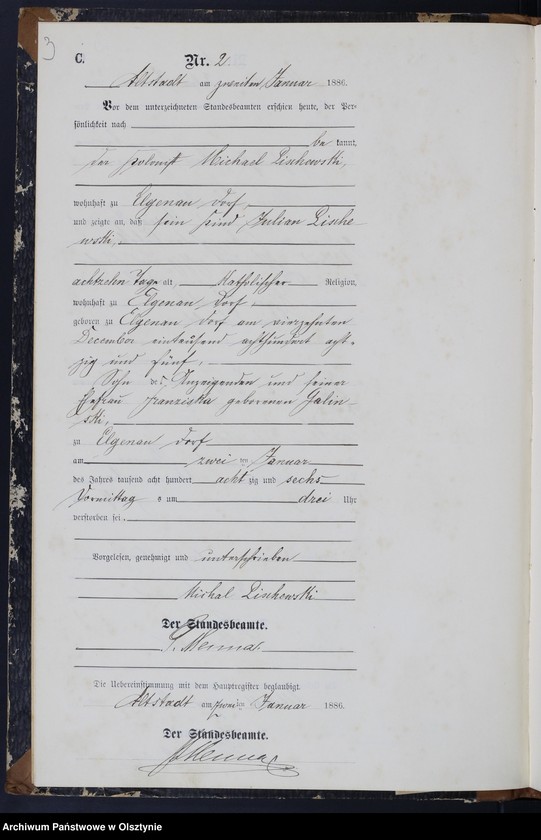 3
C.
Nr. 2.
Altstadt am zweiten Januar 1886.
Vor dem unterzeichneten Standesbeamten erschien heute, der Per-
sönlichkeit nach
be kannt,
der Michael Lischewski,
wohnhaft zu Elgenau Dorf,
und zeigte an, daß sein Kind Julian Lische-
wski,
achtzehn Tage alt, Katholischer Religion,
wohnhaft zu Elgenau Dorf
geboren zu Elgenau Dorf am vierzehnten
December eintausend achthundert acht-
zig und fünf,
Sohn des Anzeigenden und seiner
Ehefrau Franziska geborenen Galin-
ski,
zu Elgenau Dorf
am zwei ten Januar
des Jahres tausend acht hundert acht zig und sechs
Vormittags um drei Uhr
verstorben sei.
Vorgelesen, genehmigt und unterschrieben
Michal Lischewski
Der Standesbeamte.
Die Uebereinstimmung mit dem Hauptregister beglaubigt.
Altstadt am zweiten Januar 1886.
Der Standesbeamte.
Archiwum Państwowe w Olsztynie